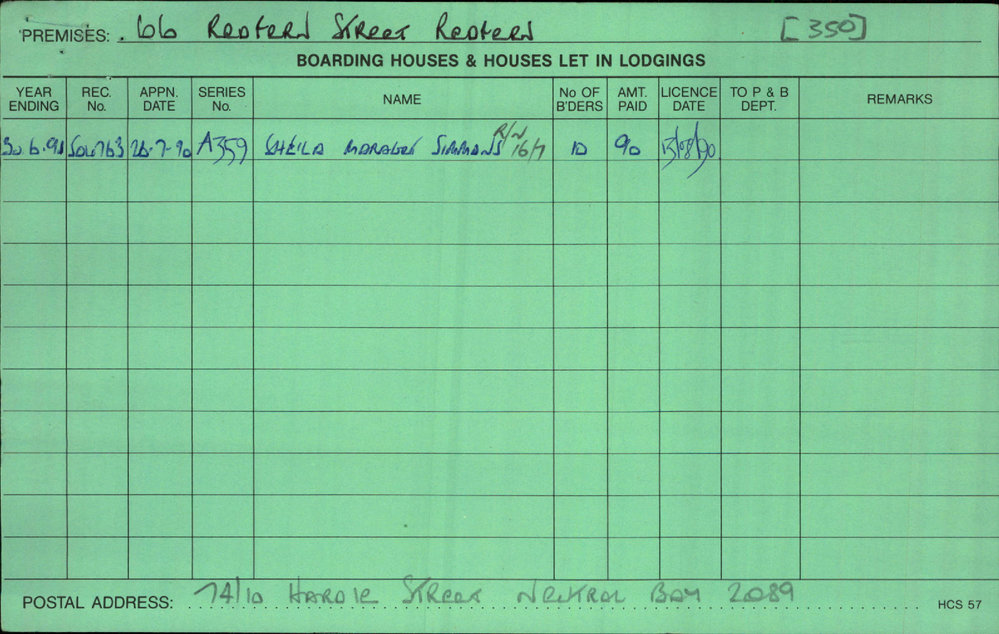 PREMISES: 66 Redfern Street Redfern [350]
BOARDING HOUSES & HOUSES LET IN LODGINGS
YEAR ENDING REC. No. APPN. DATE SERIES No. NAME No OF B'DERS AMT. PAID LICENCE DATE TO P & B DEPT. REMARKS
30.6.91 26-7-90 A359 SHEILA SIMMONS R/N 16/7 10 90 13/08/90
POSTAL ADDRESS: 74/10 HARDIE STREET NEUTRAL BAY 2089 HCS 57